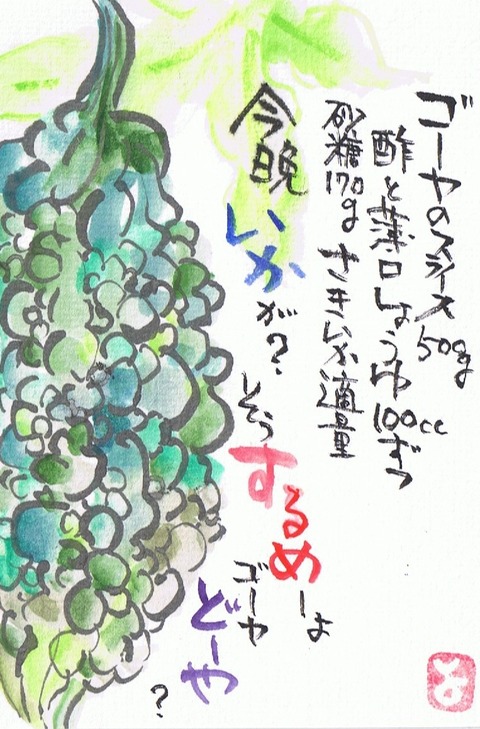 ゴーヤのスライス 50g
酢と薄口しょうゆ 100ccずつ
砂糖170g さきいか適量
今晩
いかが?
そう
するめーよ
ゴーヤ
どーや
?
よ